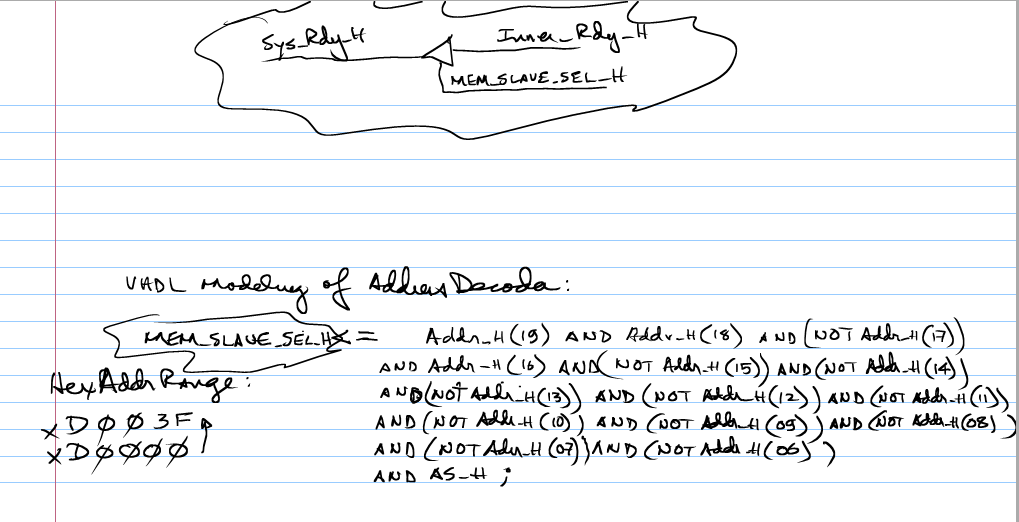 Sys_Rdy_H Inner_Rdy_H
MEM_SLAVE_SEL_H
VHDL Modeling of Address Decoder:
MEM_SLAVE_SEL_H <= Addr_H(19) AND Addr_H(18) AND (NOT Addr_H(17))
AND Addr_H(16) AND (NOT Addr_H(15)) AND (NOT Addr_H(14))
Hex Addr Range:
AND (NOT Addr_H(13)) AND (NOT Addr_H(12)) AND (NOT Addr_H(11))
xDØØ3F AND (NOT Addr_H(10)) AND (NOT Addr_H(09)) AND (NOT Addr_H(08))
xDØØØØ AND (NOT Addr_H(07)) AND (NOT Addr_H(06))
AND AS_H ;